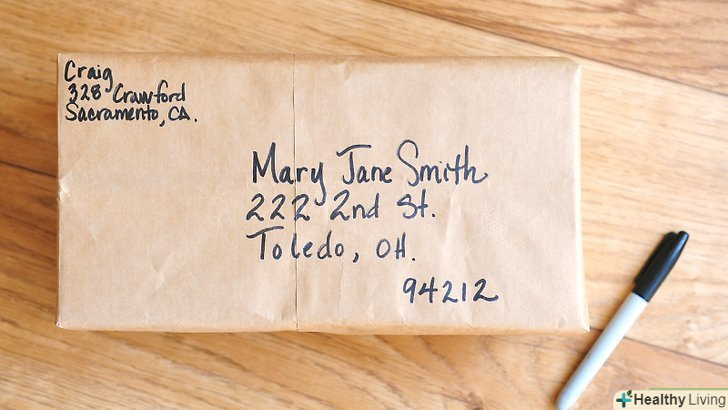 Craig
328 Crawford
Sacramento, CA.
Mary Jane Smith
222 2nd St.
Toledo, OH.
94212
Healthy Living